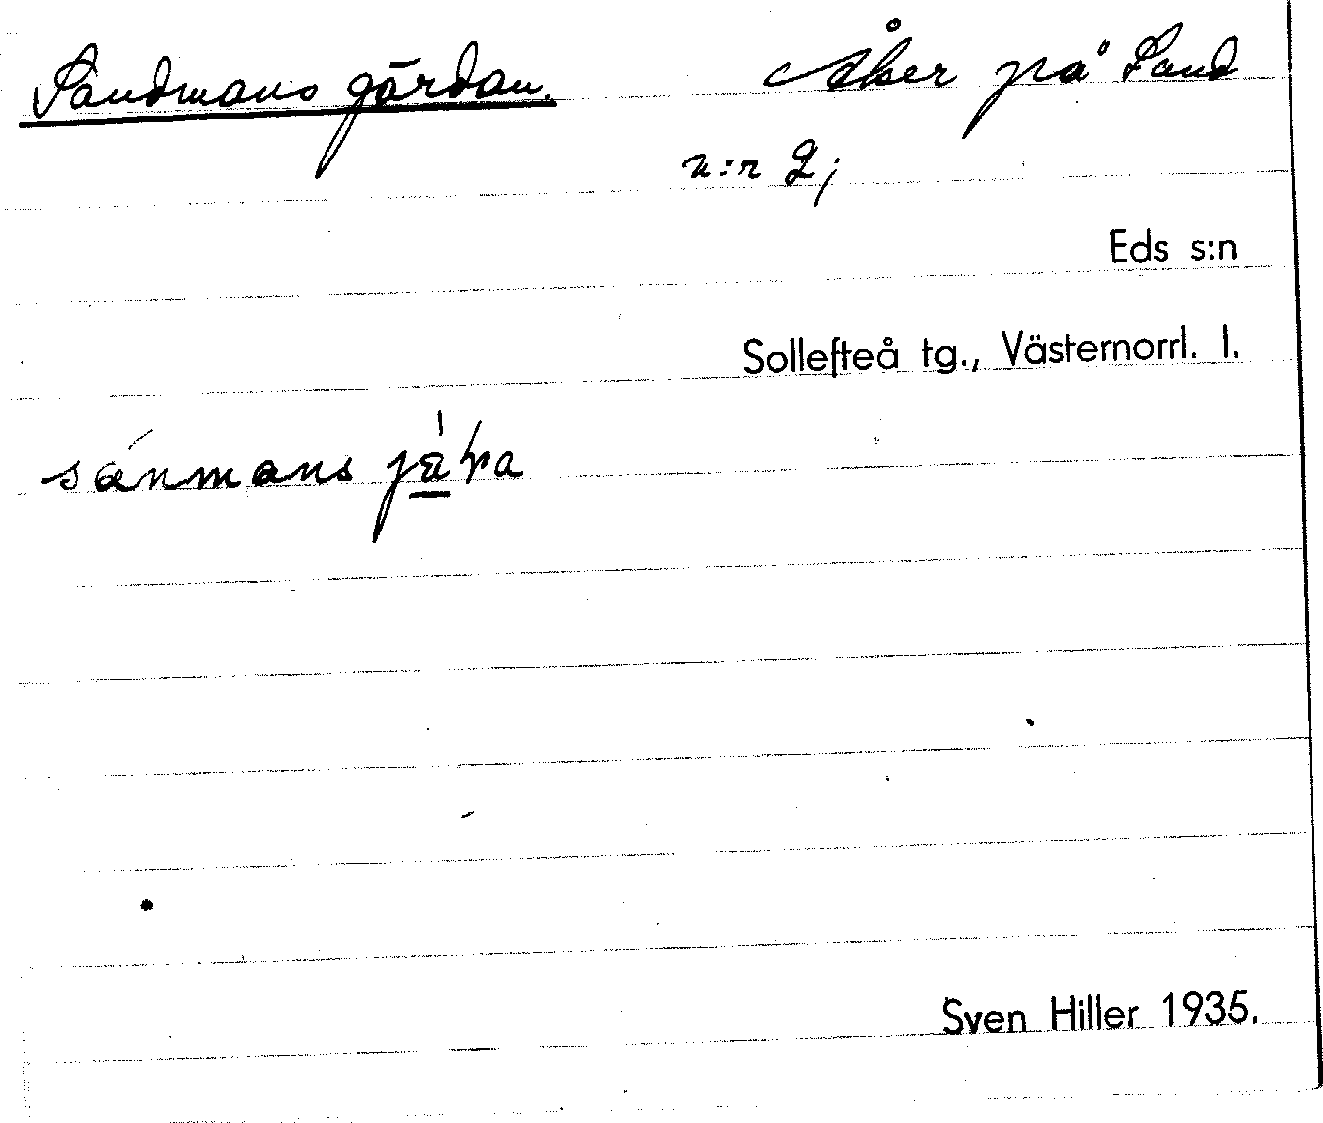 Sandmans gärdan. Åker på Sand
n:r 2;
Eds s:n
Sollefteå tg., Västernorrl. l.
sánmans
Sven Hiller 1935.